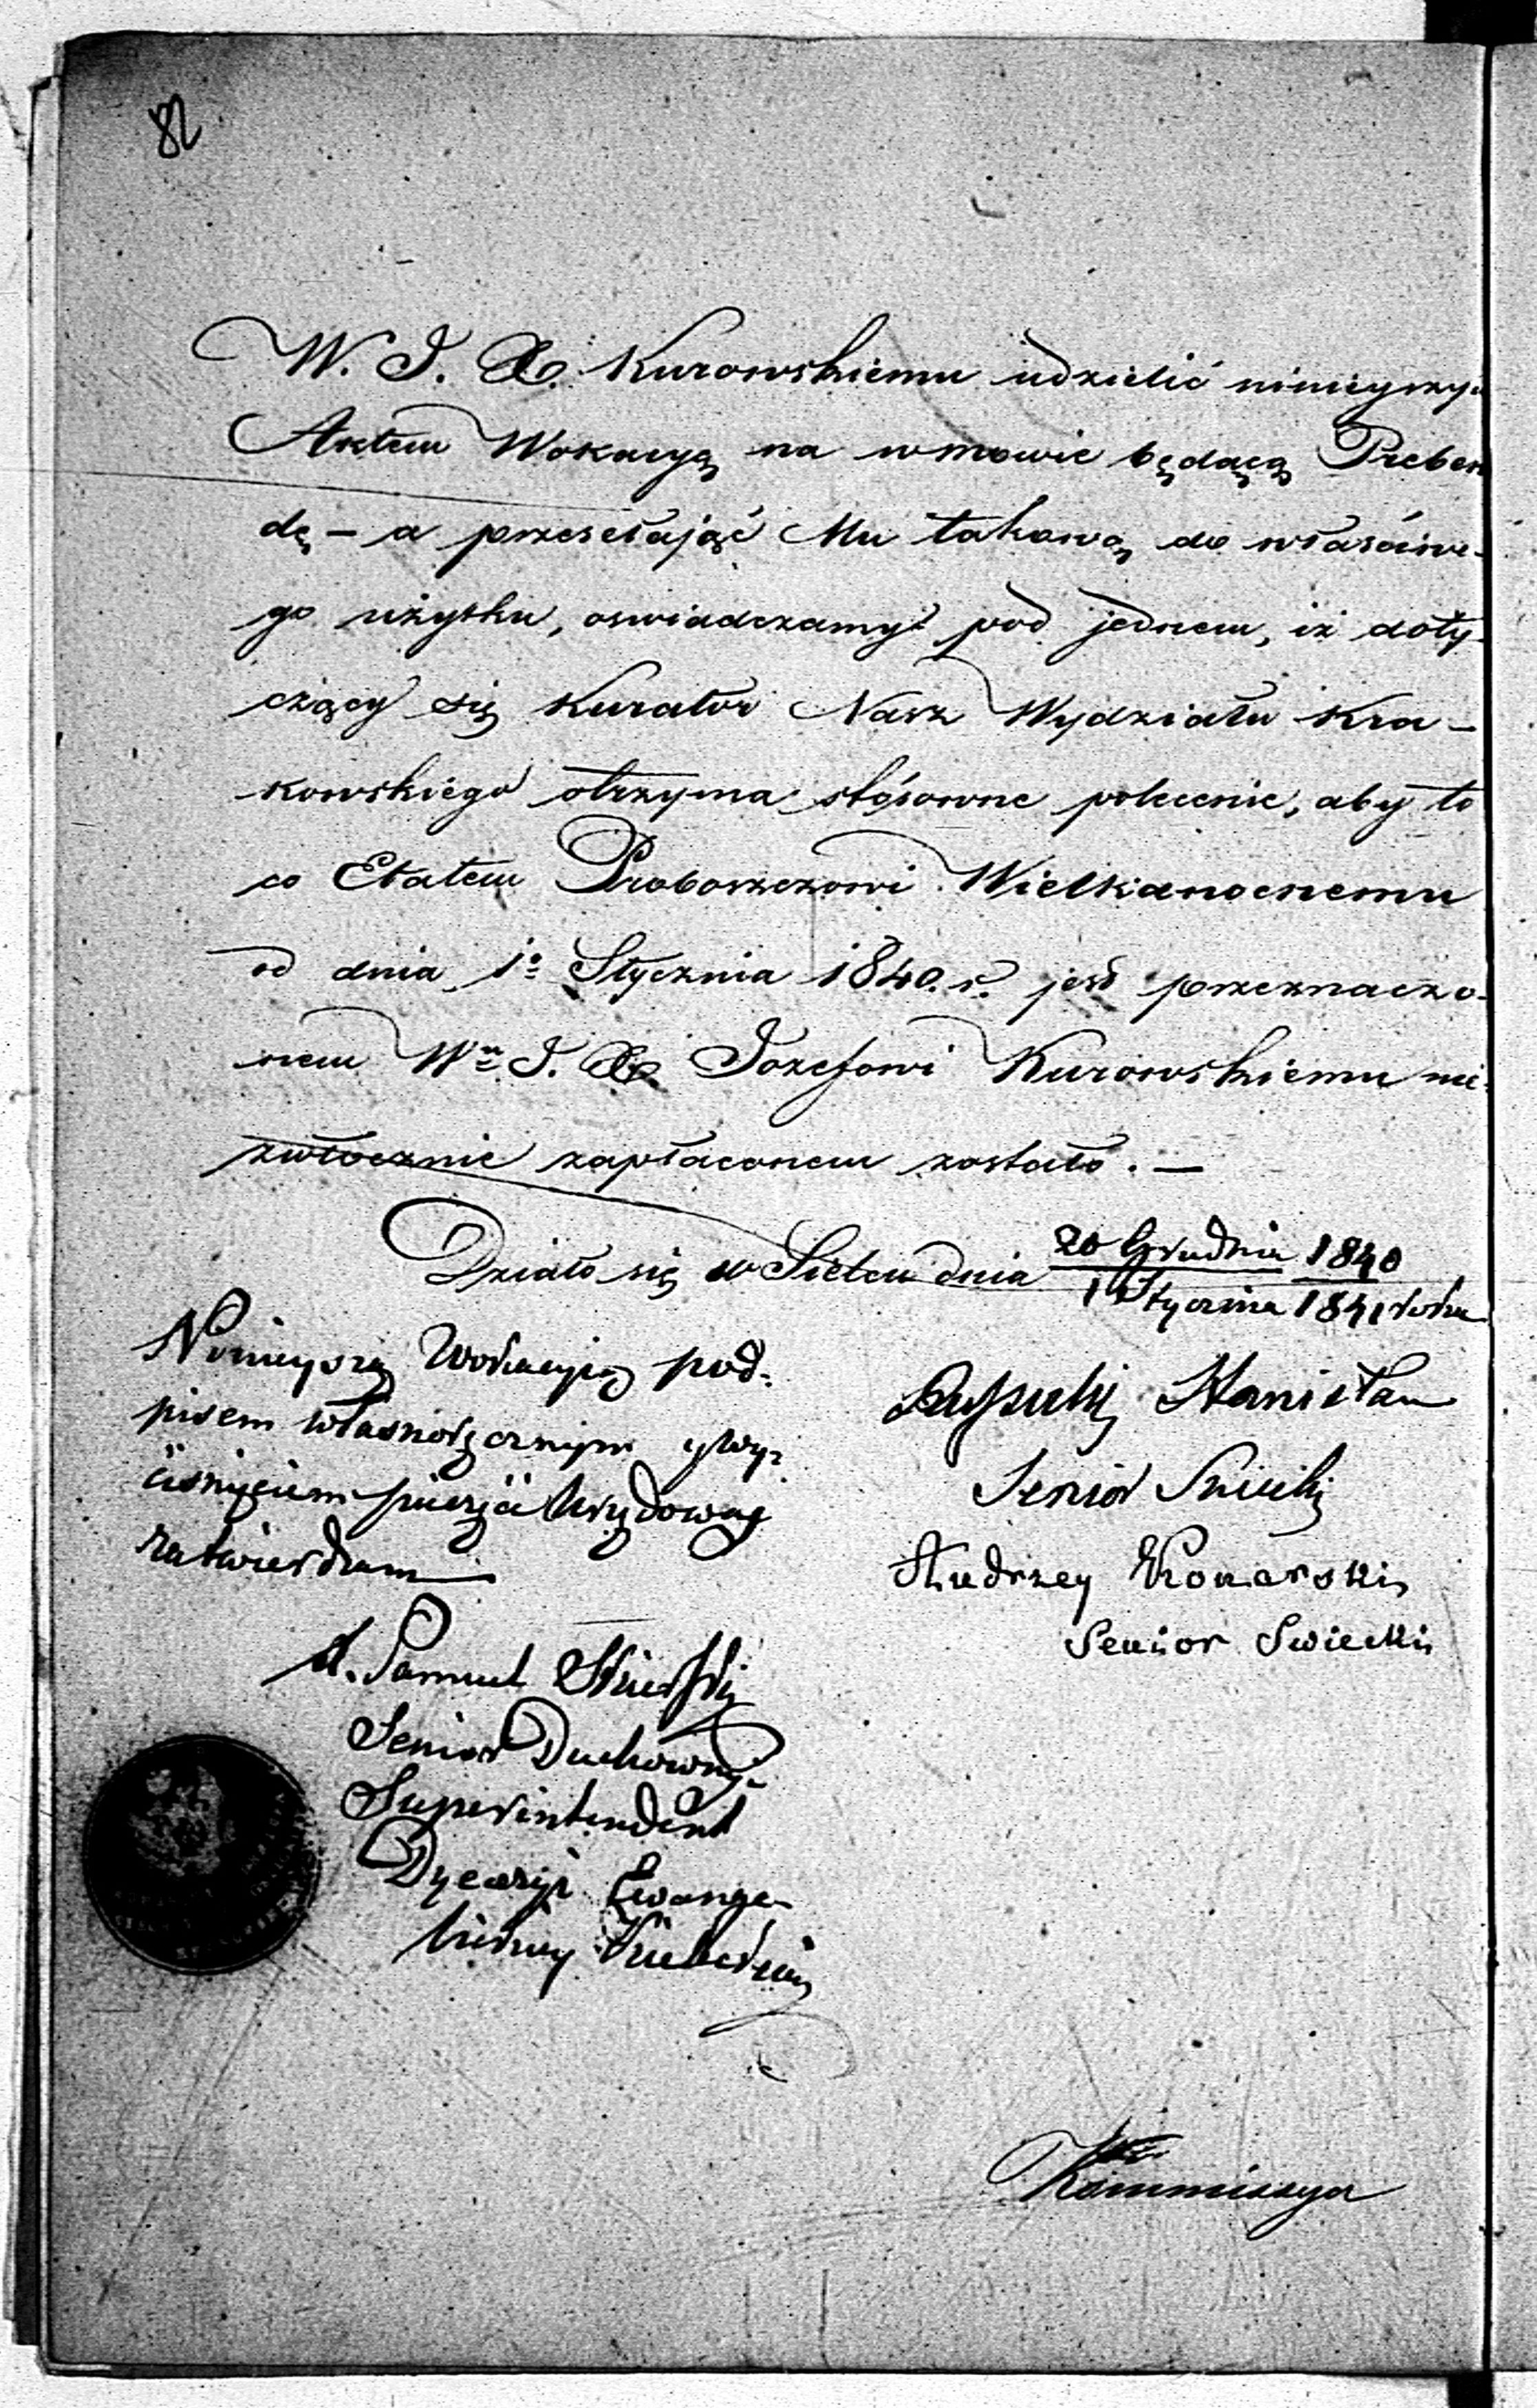 82
W. J. X. Kurowskiemu udzielić niniejszym
Aktem Wokacyą na wmowie będącą Preben
dę – a przesełając Mu takową do właściwe-
go użytku, oswiadczamy pod jednem, iż doty-
czący się Kurator Nasz Wydziału Kra-
kowskiego otrzyma stósowne polecenie, aby to
co Etatem Proboszczowi Wielkanocnemu
od dnia 1o Stycznia 1840. r. jest przeznaczo-
nem Wmu J. X Jozefowi Kurowskiemu nie-
zwłocznie zapłaconem zostało. –
Działo się w Sielcu dnia 20 Grudnia 1840
1 Stycznia 1841 roku
Ninieyszą Wokacyią pod-
pisem własnoręcznym y wy-
ciśnięciem pieczęci Urzędowey
zatwierdzam
Stanisław
Senior Swiecki
Andrzey Konarski
Senior Swiecki
X. Samuel
Senior Duchowny
Superintendent
Dyecezyi Ewange-
Kommissya